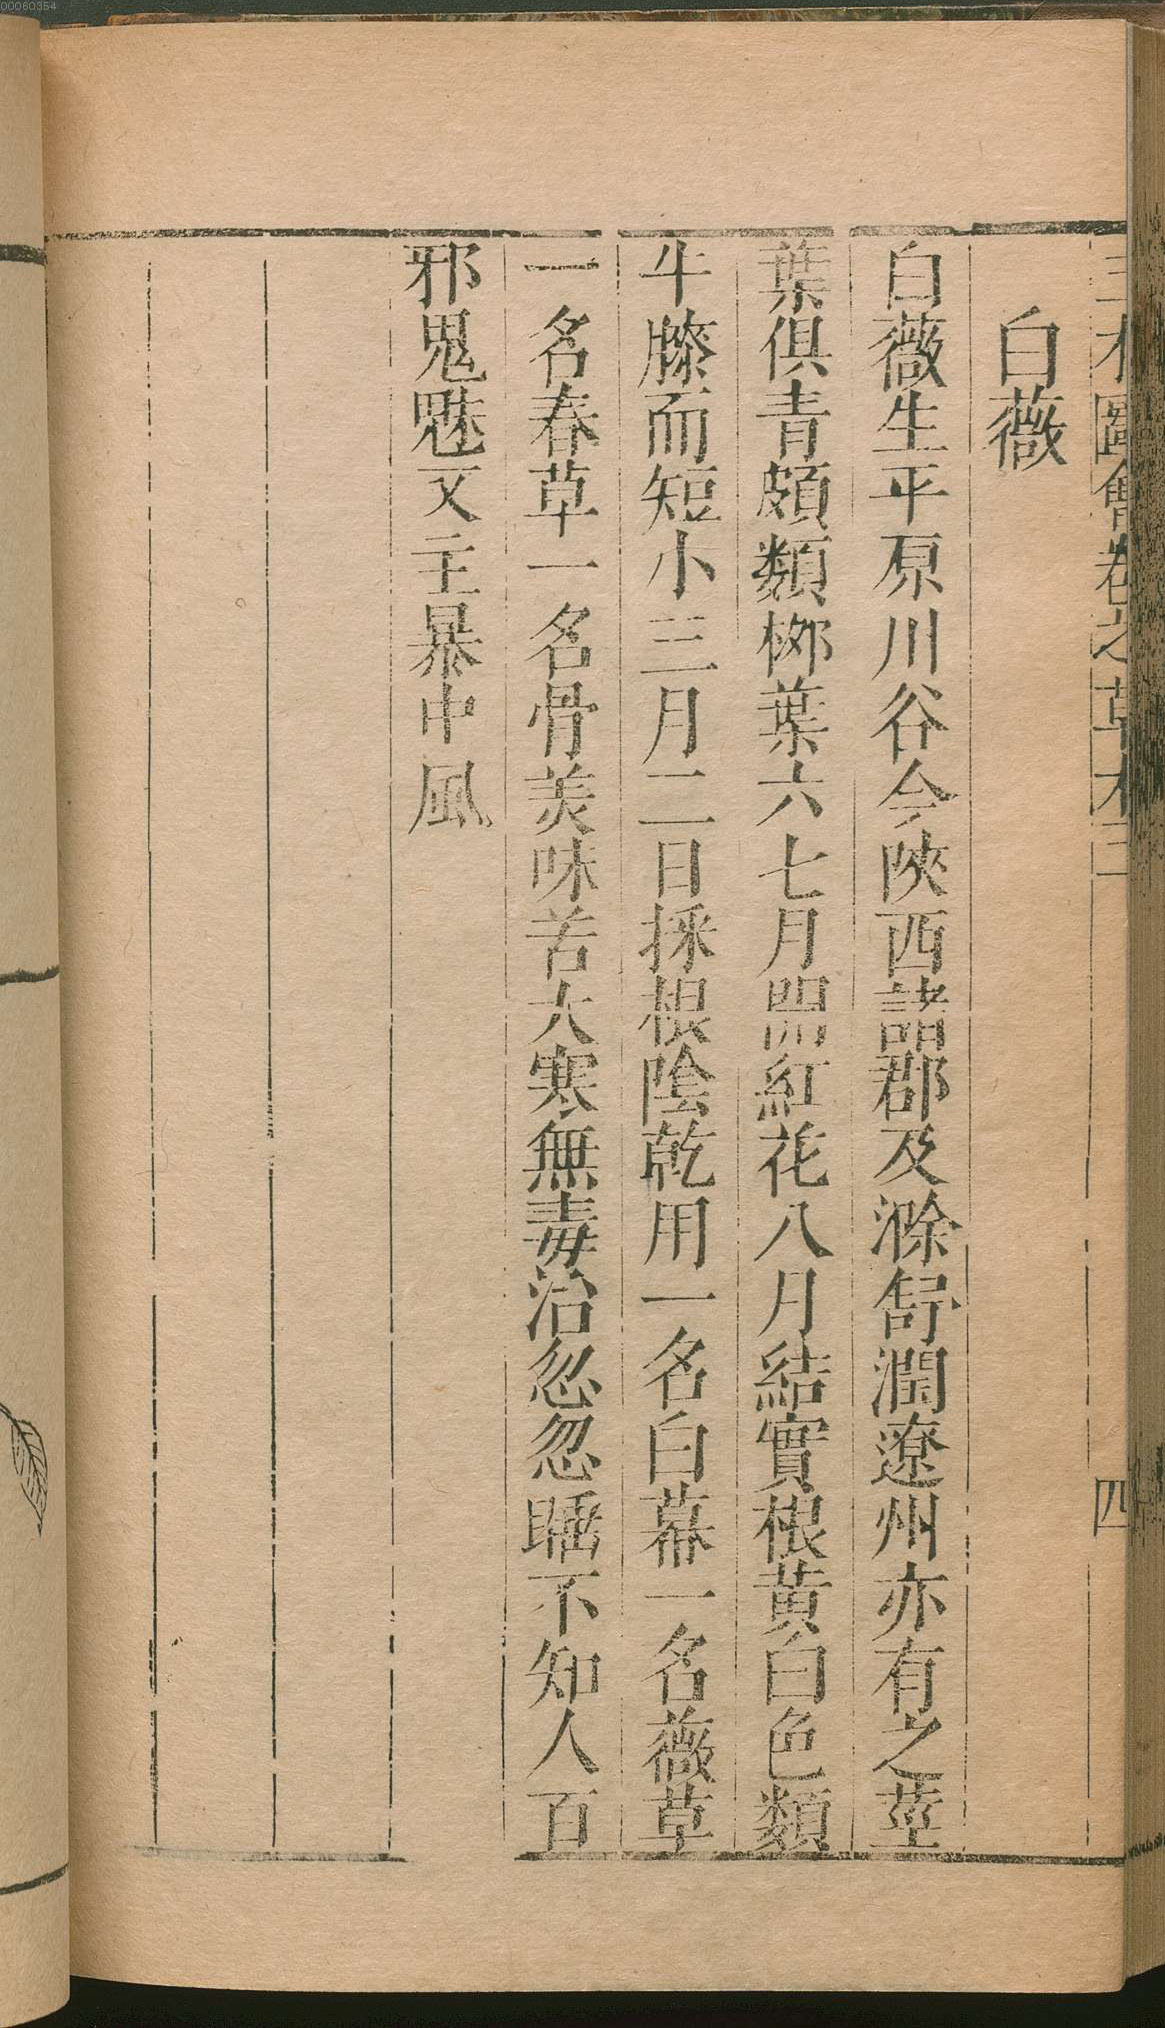 00060354
三才圖會卷之草木三
四
白薇
白薇生平原川谷今陝西諸郡及滁舒潤遼州亦有之莖
葉俱青頗類栁葉六七月開紅花八月結實根黃白色類
牛膝而短小三月二日採根陰乾用一名白幕一名薇草
一名春草一名骨美味苦大寒無毒治忽忽睡不知人百
邪鬼魅又主暴中風